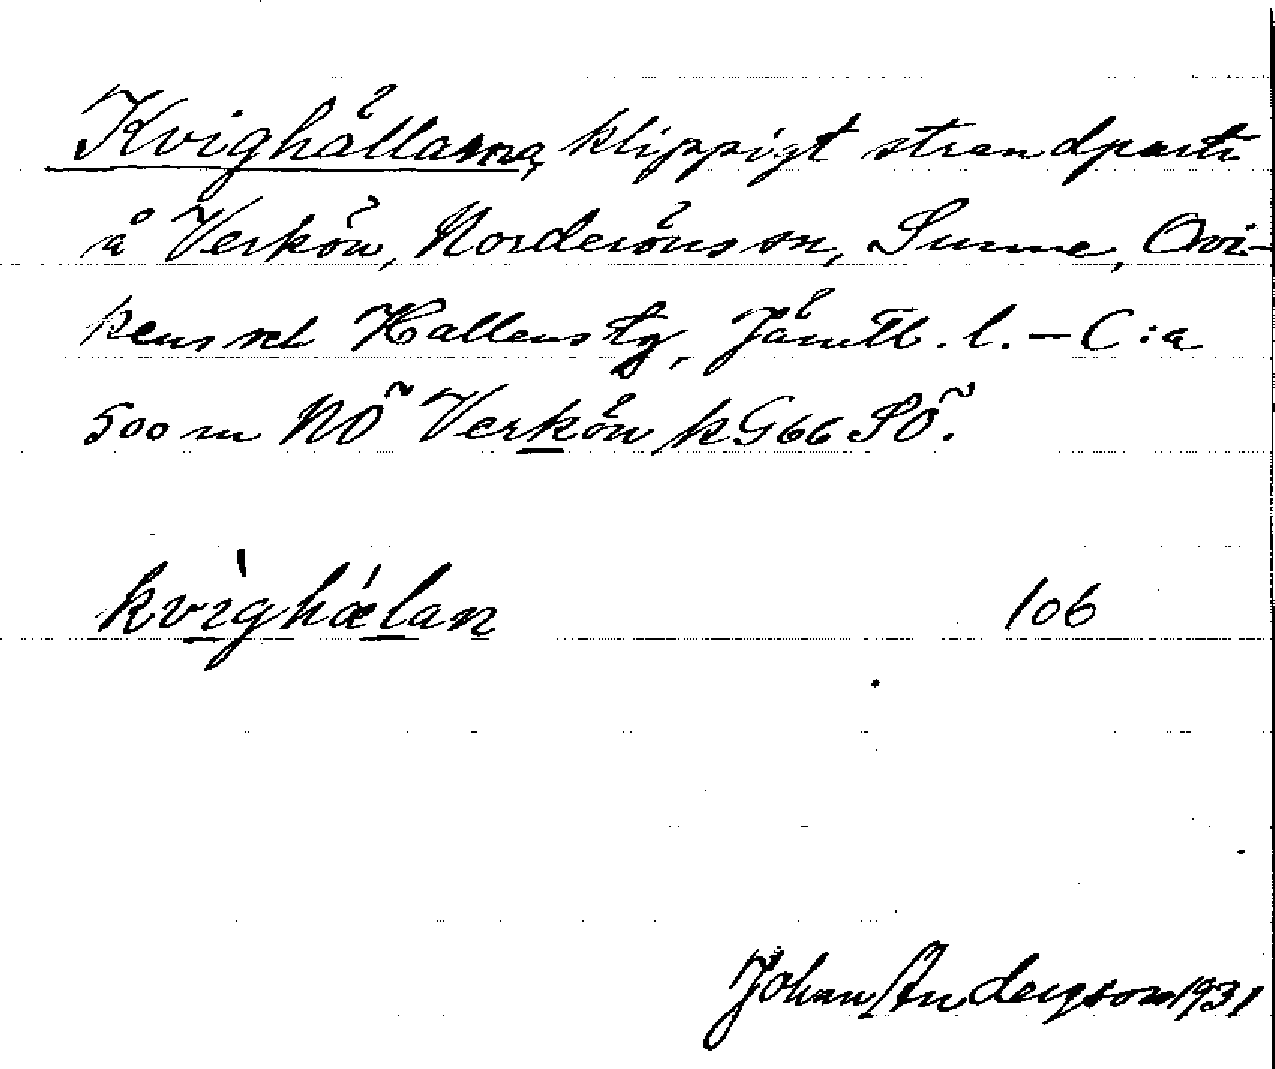 Kvighällarna, klippigt strandparti
å Verkön, Norderöns sn, Sunne, Ovi-
kens och Hallens tg, Jämtl. l. – C:a
500 m NÖ Verkön k G 66 SÖ.
kvìghǽlan 106
Johan Andersson 1931